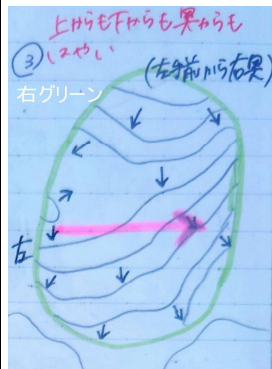 上からも下からも奥からも
③ はやい
(左手前から右奥)
右グリーン
左